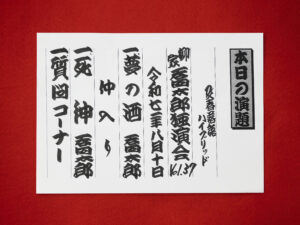 本日の演題
文春落語
ハイブリッド
柳家 喬太郎独演会 Vol.37
令和七年八月十日
一 夢の酒 喬太郎
仲入り
一 死神 喬太郎
一 質問コーナー